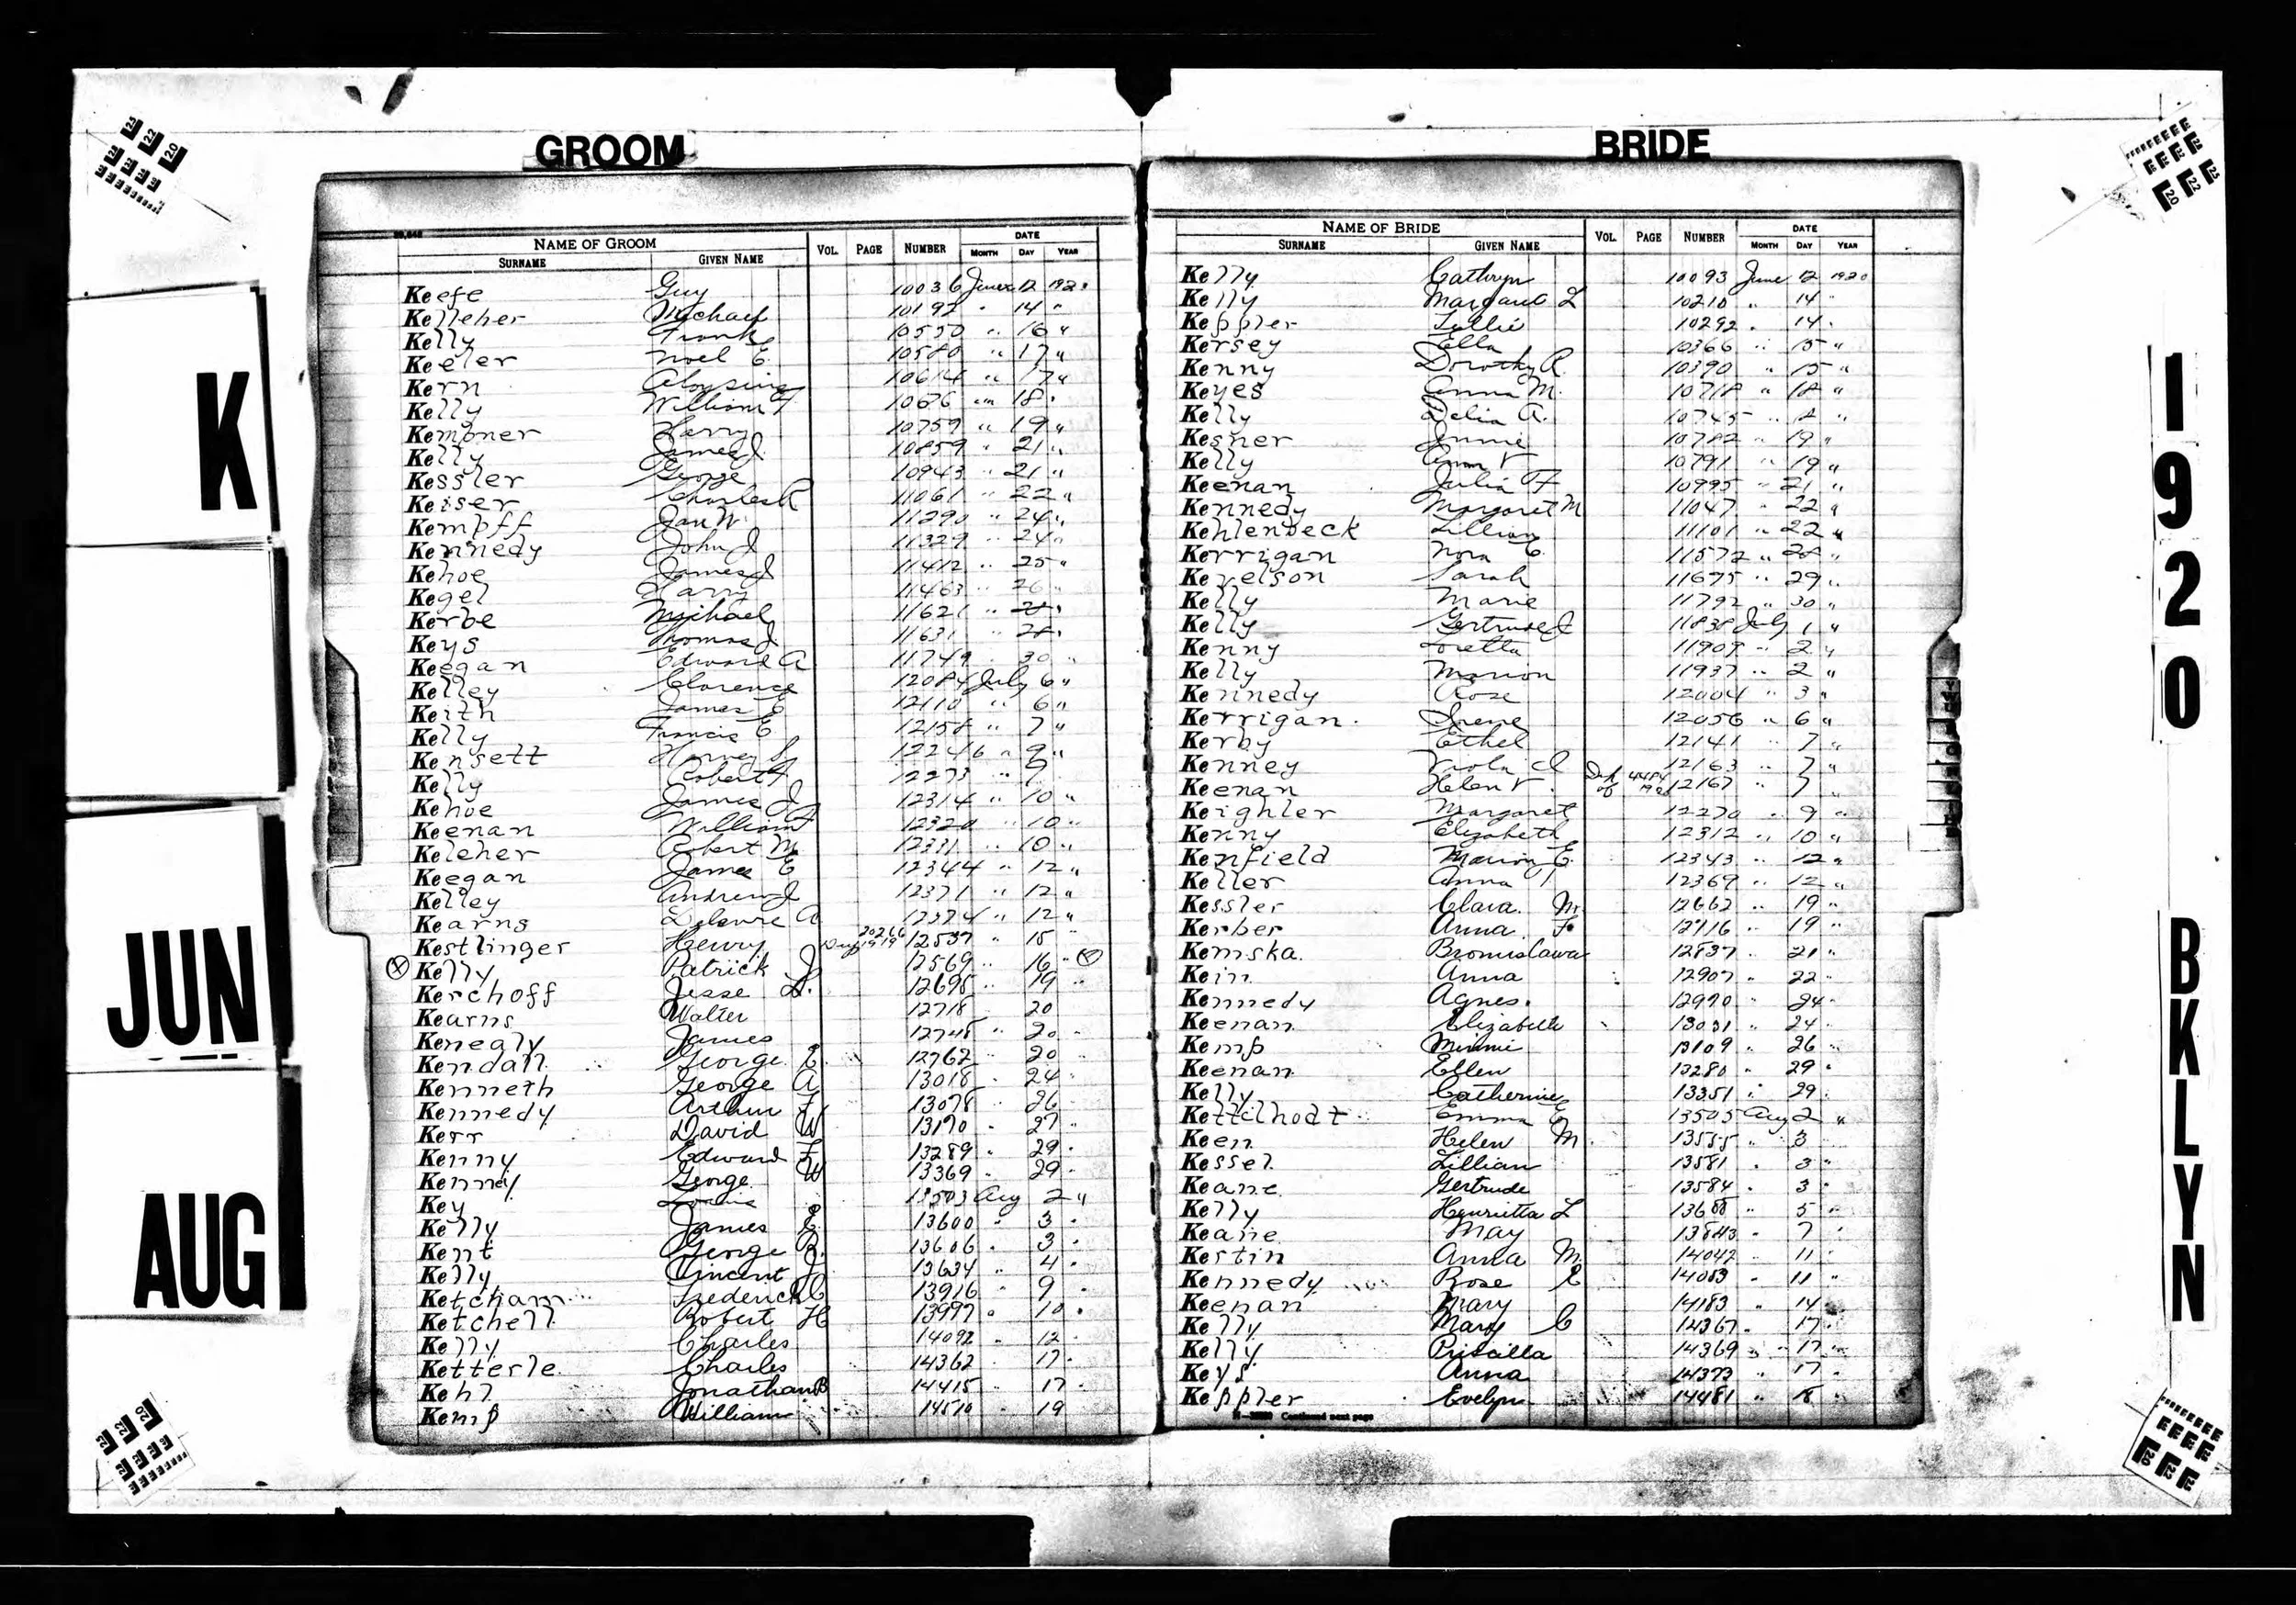 GROOM
NAME OF GROOM VOL. PAGE NUMBER DATE
SURNAME GIVEN NAME MONTH DAY YEAR
Keefe Guy 10036 June 12 1920
Kelleher Michael 10192 " 14 "
Kelly Frank 10550 " 16 "
Keeler Noel E. 10580 " 17 "
Kern Aloysius 10614 " 17 "
Kelly William F 10676 " 18 "
Kempner Harry 10759 " 19 "
Kelly James J. 10859 " 21 "
Kessler George 10943 " 21 "
Keiser Charles R 11061 " 22 "
Kempff Jan W. 11290 " 24 "
Kennedy John J 11329 " 24 "
Kehoe James J 11412 " 25 "
Kegel Harry 11463 " 26 "
Kerbe Michael 11621 " 28 "
Keys Thomas J. 11631 " 28 "
Keegan Edward A 11749 " 30 "
Kelley Clarence 12084 July 6 "
Keith James E 12110 " 6 "
Kelly Francis E 12158 " 7 "
Kensett Harvey S 12246 " 9 "
Kelly Robert F 12273 " 9
Kehoe James J 12314 " 10 "
Keenan William F 12320 " 10 "
Keleher Robert M 12331 " 10 "
Keegan James E 12344 " 12 "
Kelley Andrew J 12371 " 12 "
Kearns A 12374 " 12 "
Kestlinger Henry Dup 20266 1919 12537 " 15 "
Kelly Patrick J 12569 " 16 "
Kerchoff Jesse L. 12695 " 19 "
Kearns Walter 12718 20
Kenealy James 12748 " 20 "
Kendall George E. 12762 " 20 "
Kenneth George A 13018 " 24 "
Kennedy Arthur F 13078 " 26 "
Kerr David W 13170 " 27 "
Kenny Edward F 13289 " 29 "
Kenney George W 13369 " 29 "
Key Louis 13503 Aug 2 "
Kelly James E. 13600 " 3 "
Kent George R. 13606 " 3 "
Kelly Vincent J 13634 " 4 "
Ketcham Frederick C 13916 " 9 "
Ketchell Robert H 13997 " 10 "
Kelly Charles 14092 " 12 "
Ketterle Charles 14362 " 17 "
Kehl Jonathan B 14415 " 17 "
Kemp William 14510 " 19
BRIDE
NAME OF BRIDE VOL. PAGE NUMBER DATE
SURNAME GIVEN NAME MONTH DAY YEAR
Kelly Cathryn 10093 June 12 1920
Kelly Margaret L 10210 " 14 "
Keppler Lillie 10292 " 14 "
Kersey Ella 10366 " 15 "
Kenny Dorothy R. 10390 " 15 "
Keyes Anna M. 10718 " 18 "
Kelly Delia A. 10745 " 18 "
Kesner Jennie 10782 " 19 "
Kelly Anna V 10791 " 19 "
Keenan Julia F 10995 " 21 "
Kennedy Margaret M 11047 " 22 "
Kehlenbeck Lillian 11101 " 22 "
Kerrigan Nora C. 11572 " 28 "
Kevelson Sarah 11675 " 29 "
Kelly Marie 11792 " 30 "
Kelly Gertrude J 11838 July 1 "
Kenny Loretta 11909 " 2 "
Kelly Marion 11937 " 2 "
Kennedy Rose 12004 " 3 "
Kerrigan Irene 12056 " 6 "
Kerby Ethel 12141 " 7 "
Kenney Viola I 12163 " 7 "
Keenan Helen V. Dup of 12167 " 7 "
Keighler Margaret 12270 " 9 "
Kenny Elizabeth 12312 " 10 "
Kenfield Marion E. 12343 " 12 "
Keller Anna T 12369 " 12 "
Kessler Clara M. 12662 " 19 "
Kerber Anna F. 12716 " 19 "
Kemska Bronislawa 12837 " 21 "
Kein Anna 12907 " 22 "
Kennedy Agnes 12970 " 24 "
Keenan Elizabeth 13031 " 24 "
Kemp Minnie 13109 " 26 "
Keenan Ellen 13280 " 29 "
Kelly Catherine 13351 " 29 "
Kettelhodt Emma E 13505 Aug 2 "
Keen Helen M. 13555 " 3
Kessel Lillian 13581 " 3 "
Keane Gertrude 13584 " 3 "
Kelly Henrietta L 13688 " 5 "
Keane May 13843 " 7 "
Kerstin Anna M. 14042 " 11 "
Kennedy Rose E 14053 " 11 "
Keenan Mary 14183 " 14 "
Kelly Mary C 14367 " 17 "
Kelly Priscilla 14369 " 17 "
Keys Anna 14373 " 17 "
Keppler Evelyn 14481 " 18 "
Continued next page
K
JUN
AUG
1920
BKLYN